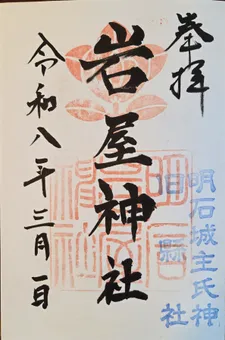 奉拝
岩屋神社
令和八年三月一日
明石城主氏神
旧縣社